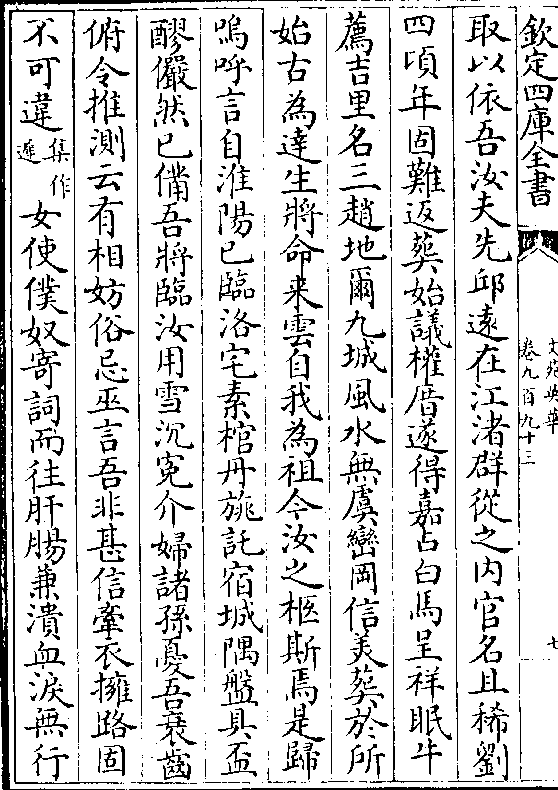 欽定四庫全書
文苑英華
卷九百九十三
七
取以依吾汝夫先邱遠在江渚群從之内官名且稀劉
四頃年固難返葬始議權厝遂得嘉占白馬呈祥眠牛
薦吉里名三趙地爾九城風水無虞巒岡信美葬於所
始古為達生將命来雲自我為祖今汝之柩斯焉是歸
嗚呼言自淮陽已臨洛宅素棺丹旐託宿城隅盤具盃
醪儼然已備吾將臨汝用雪沉寃介婦諸孫憂吾衰齒
俯令推測云有相妨俗忌巫言吾非甚信牽衣擁路固
不可違集作遲女使僕奴寄詞而往肝腸兼潰血淚無行